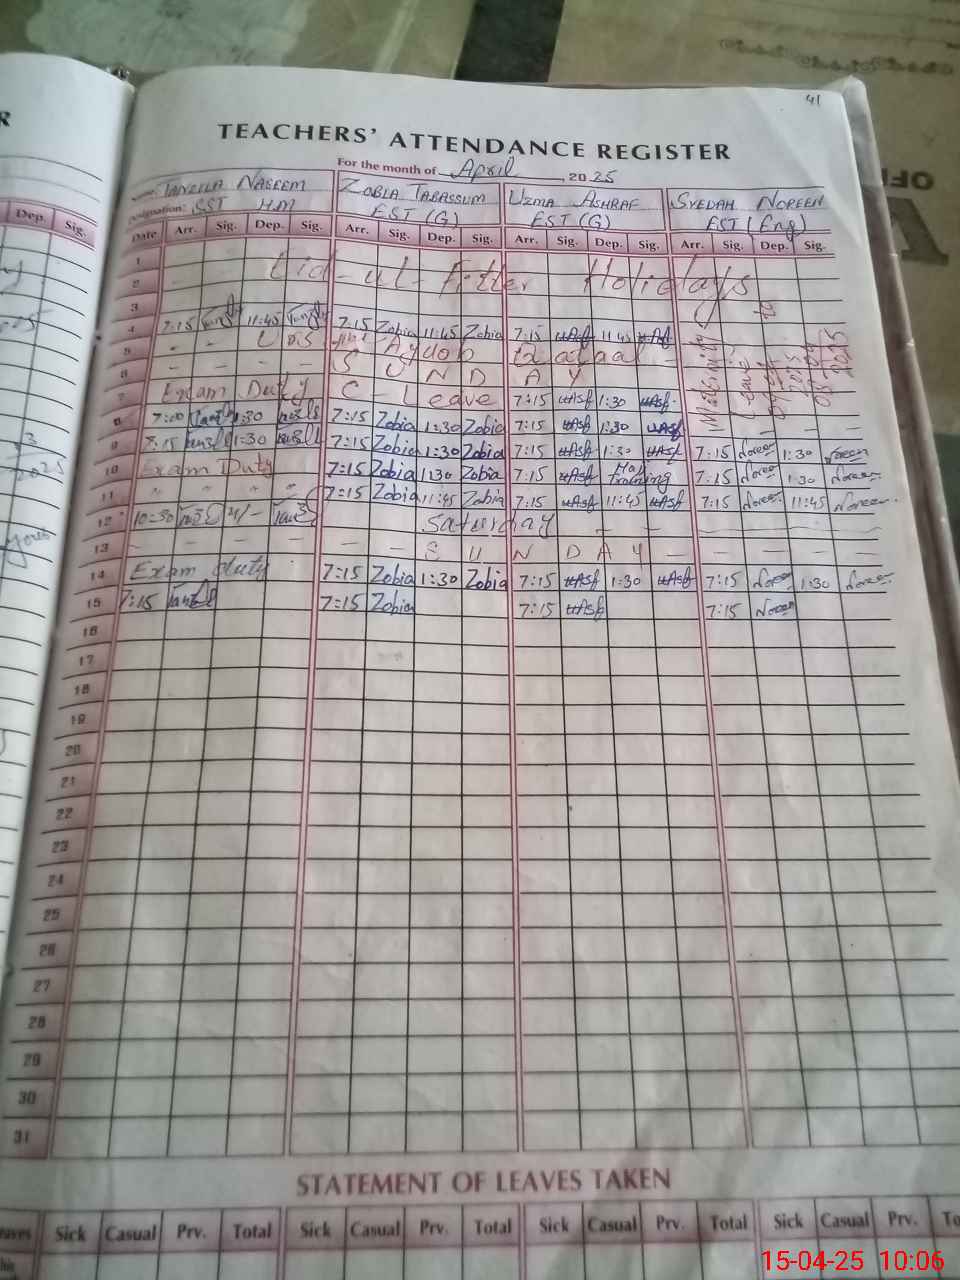 41
TEACHERS' ATTENDANCE REGISTER
For the month of April, 2025
R
OFF
TANZILA NASEEM ZOBIA TABASSUM UZMA ASHRAF SYEDAH NOREEN
Designation: SST H.M EST (G) EST (G) EST (Eng)
Dep. Sig.
Date Arr. Sig. Dep. Sig. Arr. Sig. Dep. Sig. Arr. Sig. Dep. Sig. Arr. Sig. Dep. Sig.
1
2 Eid-ul-Fitter Holidays
3
4 7:15 11:45 7:15 Zobia 11:45 Zobia 7:15 uAsf 11:45 uAsf
5
6 - - - - S U N D A Y
7 Exam Duty C - Leave 7:15 uAsf 1:30 uAsf
Maternity Leave to 2025
8 7:00 1:30 7:15 Zobia 1:30 Zobia 7:15 uAsf 1:30 uAsf
9 7:15 1:30 7:15 Zobia 1:30 Zobia 7:15 uAsf 1:30 uAsf 7:15 Noreen 1:30 Noreen
10 Exam Duty 7:15 Zobia 1:30 Zobia 7:15 uAsf Training 7:15 Noreen 1:30 Noreen
11 " " " " 7:15 Zobia 11:45 Zobia 7:15 uAsf 11:45 uAsf 7:15 Noreen 11:45 Noreen
12 10:30 Saturday - -
13 - - - - - - S U N D A Y - - - -
14 Exam duty 7:15 Zobia 1:30 Zobia 7:15 uAsf 1:30 uAsf 7:15 Noreen 1:30 Noreen
15 7:15 7:15 Zobia 7:15 uAsf 7:15 Noreen
16
17
18
19
20
21
22
23
24
25
26
27
28
29
30
31
STATEMENT OF LEAVES TAKEN
Leaves Sick Casual Prv. Total Sick Casual Prv. Total Sick Casual Prv. Total Sick Casual Prv. To
15-04-25 10:06